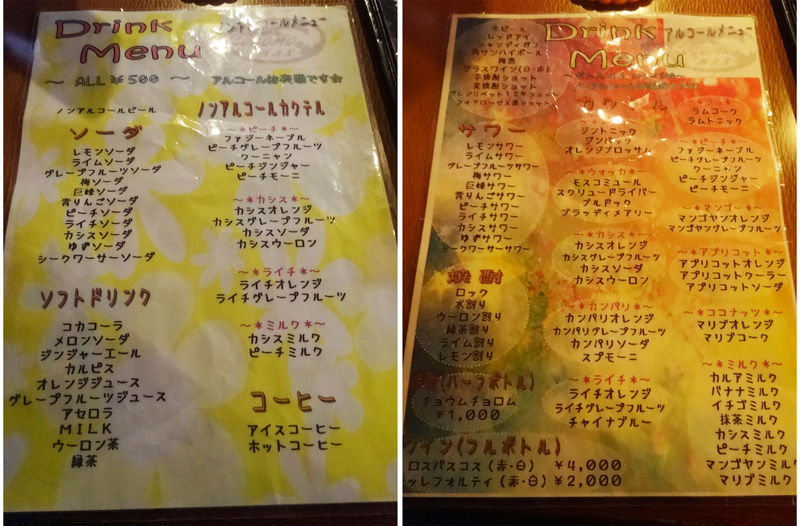 Drink
Menu
ノンアルコールメニュー
～ ALL ￥500 ～
ノンアルコールビール
ソーダ
レモンソーダ
ライムソーダ
グレープフルーツソーダ
梅ソーダ
巨峰ソーダ
青りんごソーダ
ピーチソーダ
ライチソーダ
カシスソーダ
ゆずソーダ
シークワーサーソーダ
ソフトドリンク
コカコーラ
メロンソーダ
ジンジャーエール
カルピス
オレンジジュース
グレープフルーツジュース
アセロラ
MILK
ウーロン茶
緑茶
ノンアルコールカクテル
～＊ピーチ＊～
ファジーネーブル
ピーチグレープフルーツ
クーニャン
ピーチジンジャー
ピーチモーニ
～＊カシス＊～
カシスオレンジ
カシスグレープフルーツ
カシスソーダ
カシスウーロン
～＊ライチ＊～
ライチオレンジ
ライチグレープフルーツ
～＊ミルク＊～
カシスミルク
ピーチミルク
コーヒー
アイスコーヒー
ホットコーヒー
Drink
Menu
アルコールメニュー
生ビール
レッドアイ
シャンディガフ
角サンハイボール
梅酒
グラスワイン(白・赤)
芋焼酎ショット
麦焼酎ショット
サワー
レモンサワー
ライムサワー
グレープフルーツサワー
梅サワー
巨峰サワー
青りんごサワー
ピーチサワー
ライチサワー
カシスサワー
ゆずサワー
シークワーサーサワー
焼酎
ロック
水割り
ウーロン割り
緑茶割り
ライム割り
レモン割り
(ハーフボトル)
チョウムチョロム
￥1,000
ワイン(フルボトル)
ロスパスコス (赤・白) ￥4,000
ッレフォルティ (赤・白) ￥2,000
カクテル
ジントニック
ジンバック
オレンジブロッサム
～＊ウォッカ＊～
モスコミュール
スクリュードライバー
ブルドック
ブラッディメアリー
～＊カシス＊～
カシスオレンジ
カシスグレープフルーツ
カシスソーダ
カシスウーロン
～＊カンパリ＊～
カンパリオレンジ
カンパリグレープフルーツ
カンパリソーダ
スプモーニ
～＊ライチ＊～
ライチオレンジ
ライチグレープフルーツ
チャイナブルー
ラムコーク
ラムトニック
～＊ピーチ＊～
ファジーネーブル
ピーチグレープフルーツ
クーニャン
ピーチジンジャー
ピーチモーニ
～＊マンゴー＊～
マンゴヤンオレンジ
マンゴヤングレープフルーツ
～＊アプリコット＊～
アプリコットオレンジ
アプリコットクーラー
アプリコットソーダ
～＊ココナッツ＊～
マリブオレンジ
マリブコーク
～＊ミルク＊～
カルアミルク
バナナミルク
イチゴミルク
抹茶ミルク
カシスミルク
ピーチミルク
マンゴヤンミルク
マリブミルク